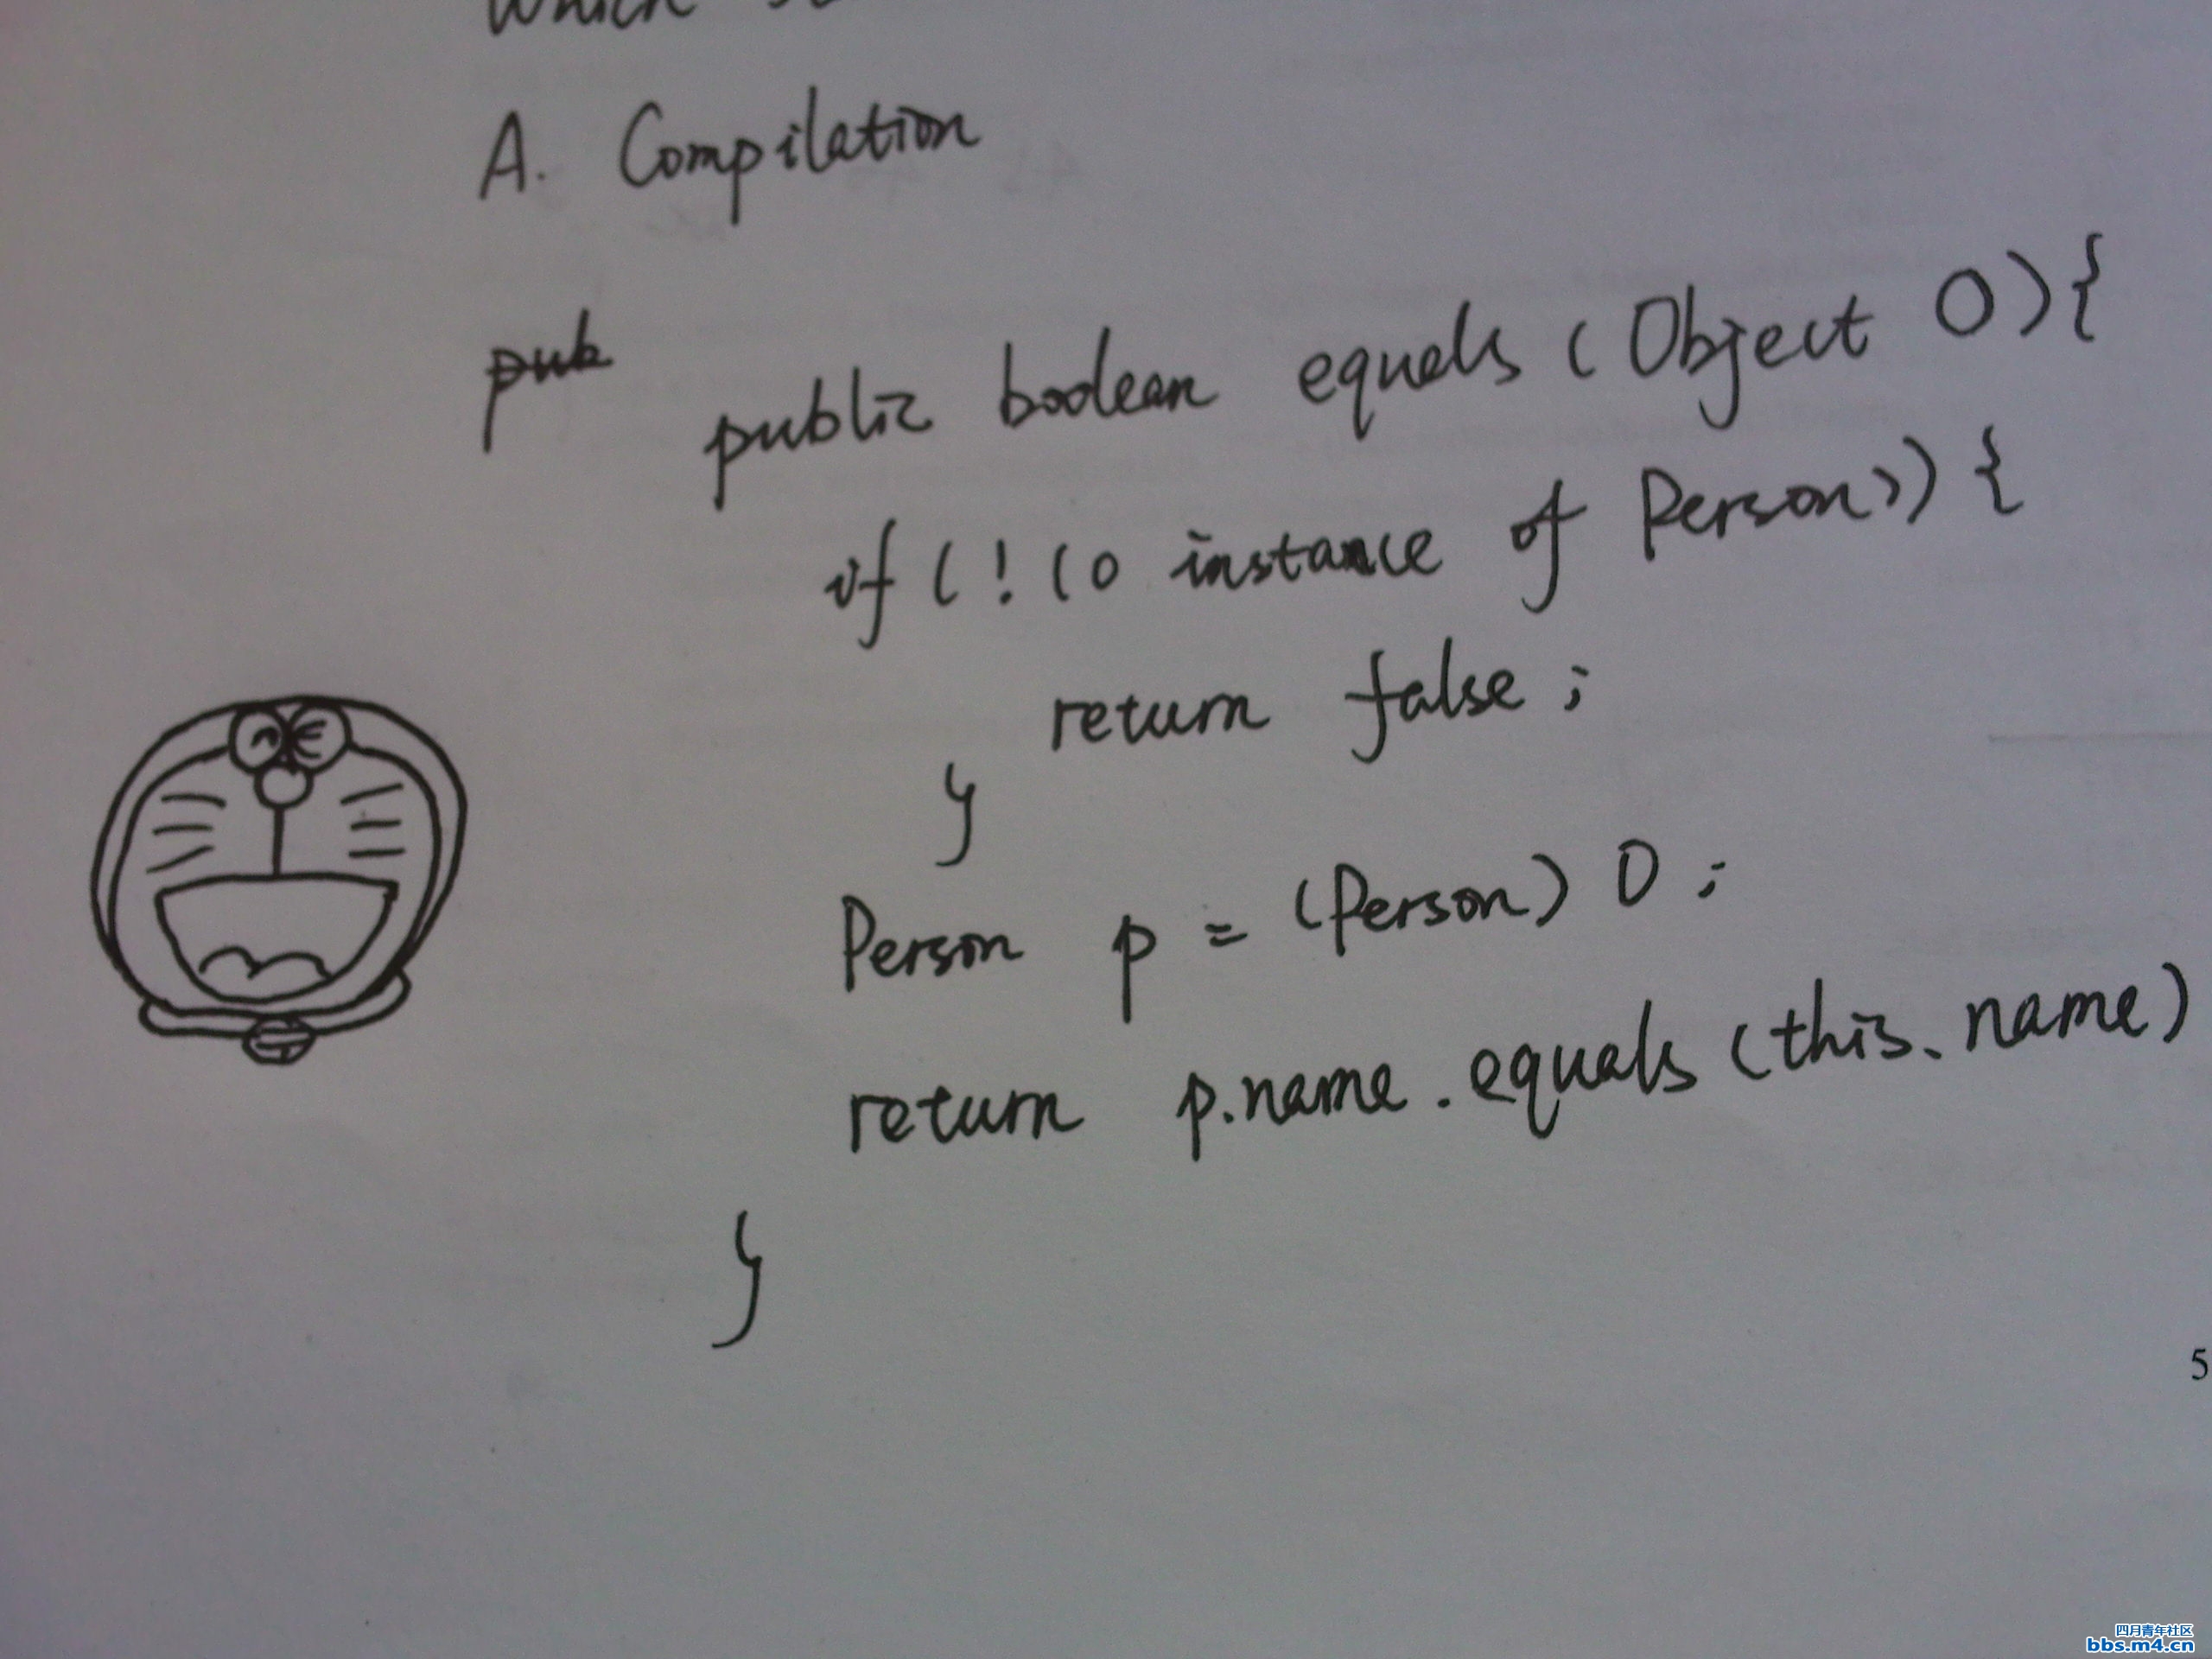 Which
A. Compilation
pub
public boolean equals (Object O) {
if (! (o instance of Person)) {
return false ;
}
Person p = (Person) O ;
return p.name.equals (this.name)
}
5
四月青年社区
bbs.m4.cn